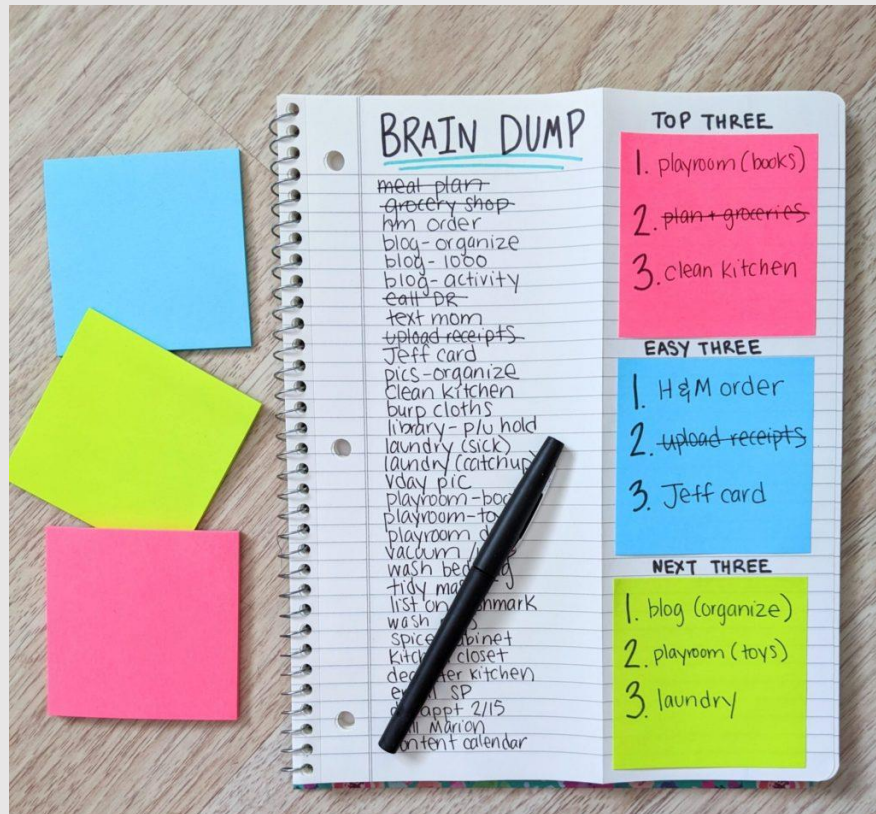 BRAIN DUMP
meal plan
grocery shop
hm order
blog-organize
blog-1000
blog-activity
call DR
text mom
upload receipts
Jeff card
pics-organize
clean kitchen
burp cloths
library-p/u hold
laundry (sick)
laundry (catchup)
vday pic
playroom-boo
playroom-to
playroom d
vacuum /
wash bed g
tidy ma
list on nmark
wash
spice binet
kitch closet
dec ter kitchen
e SP
appt 2/15
ll Marion
ontent calendar
TOP THREE
1. playroom (books)
2. plan + groceries
3. clean kitchen
EASY THREE
1. H&M order
2. upload receipts
3. Jeff card
NEXT THREE
1. blog (organize)
2. playroom (toys)
3. laundry